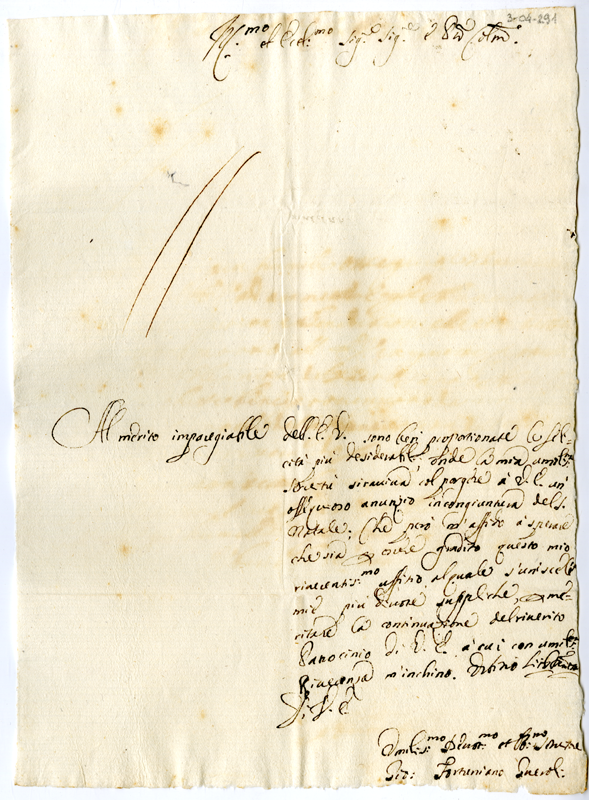 3-04-291
Ill.mo et Ecc.mo Sig.re Sig.re e P̃ron Col.mo
Al merito impareggiabile dell'E. V. sono ben proportionate le feli-
cità più desiderabili, onde la mia umil.ma
servitù si ravviva col porgere à V. E. un'
ossequioso anunzio in congiuntura del S.
Natale; Che però m'affido à sperare
che sia p esser gradito questo mio
riverentis.mo uffitio, al quale s'uniscono le
mie più divote suppliche, p me-
ritare la continuazione del riverito
Patrocinio di V. E. à cui con umil.ma
Riverenza m'inchino. Urbino li
Di V. E.
Umilis.mo Devot.mo et Obl.mo Servitore
Gio: Fortuniano